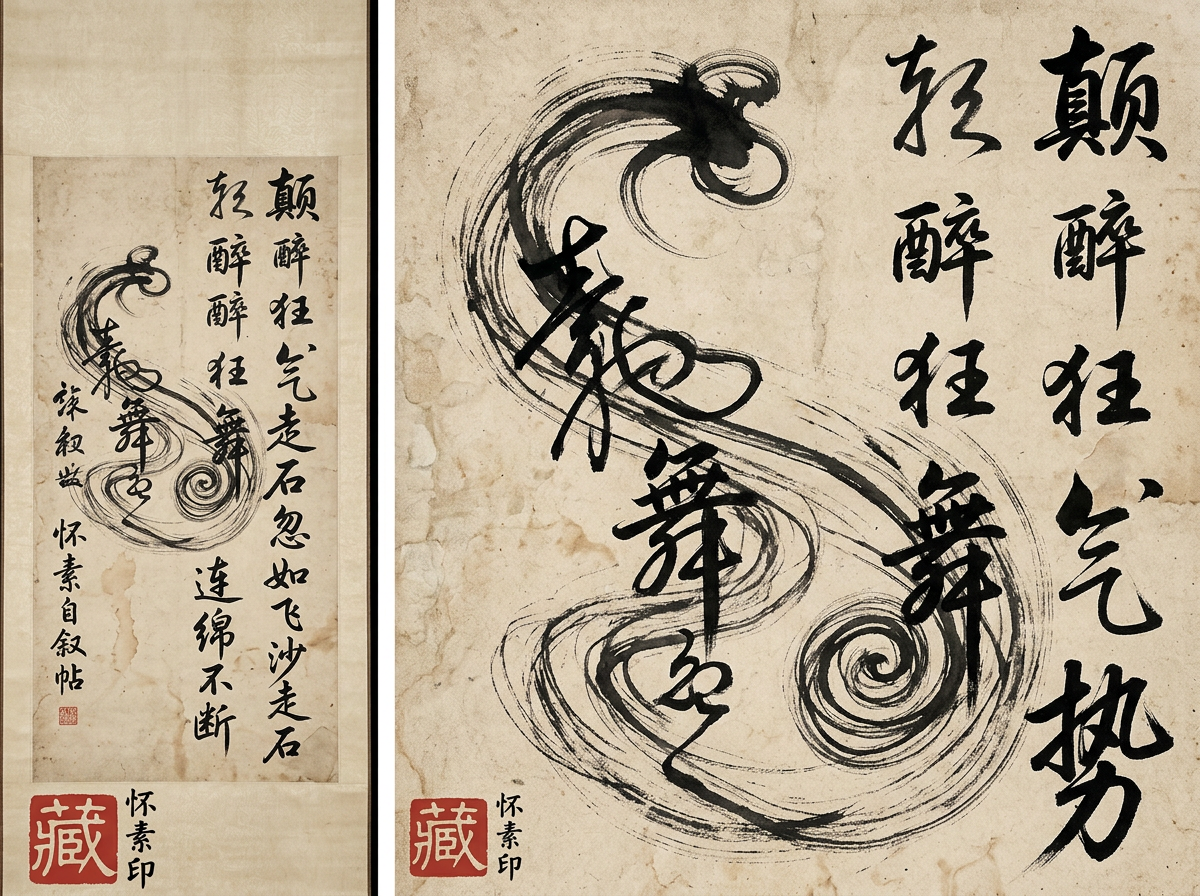 颠醉狂气走石忽如飞沙走石
醉醉狂舞
连绵不断
舞
怀素自叙帖
藏
怀素印
颠醉狂气势
醉狂舞
舞
藏
怀素印